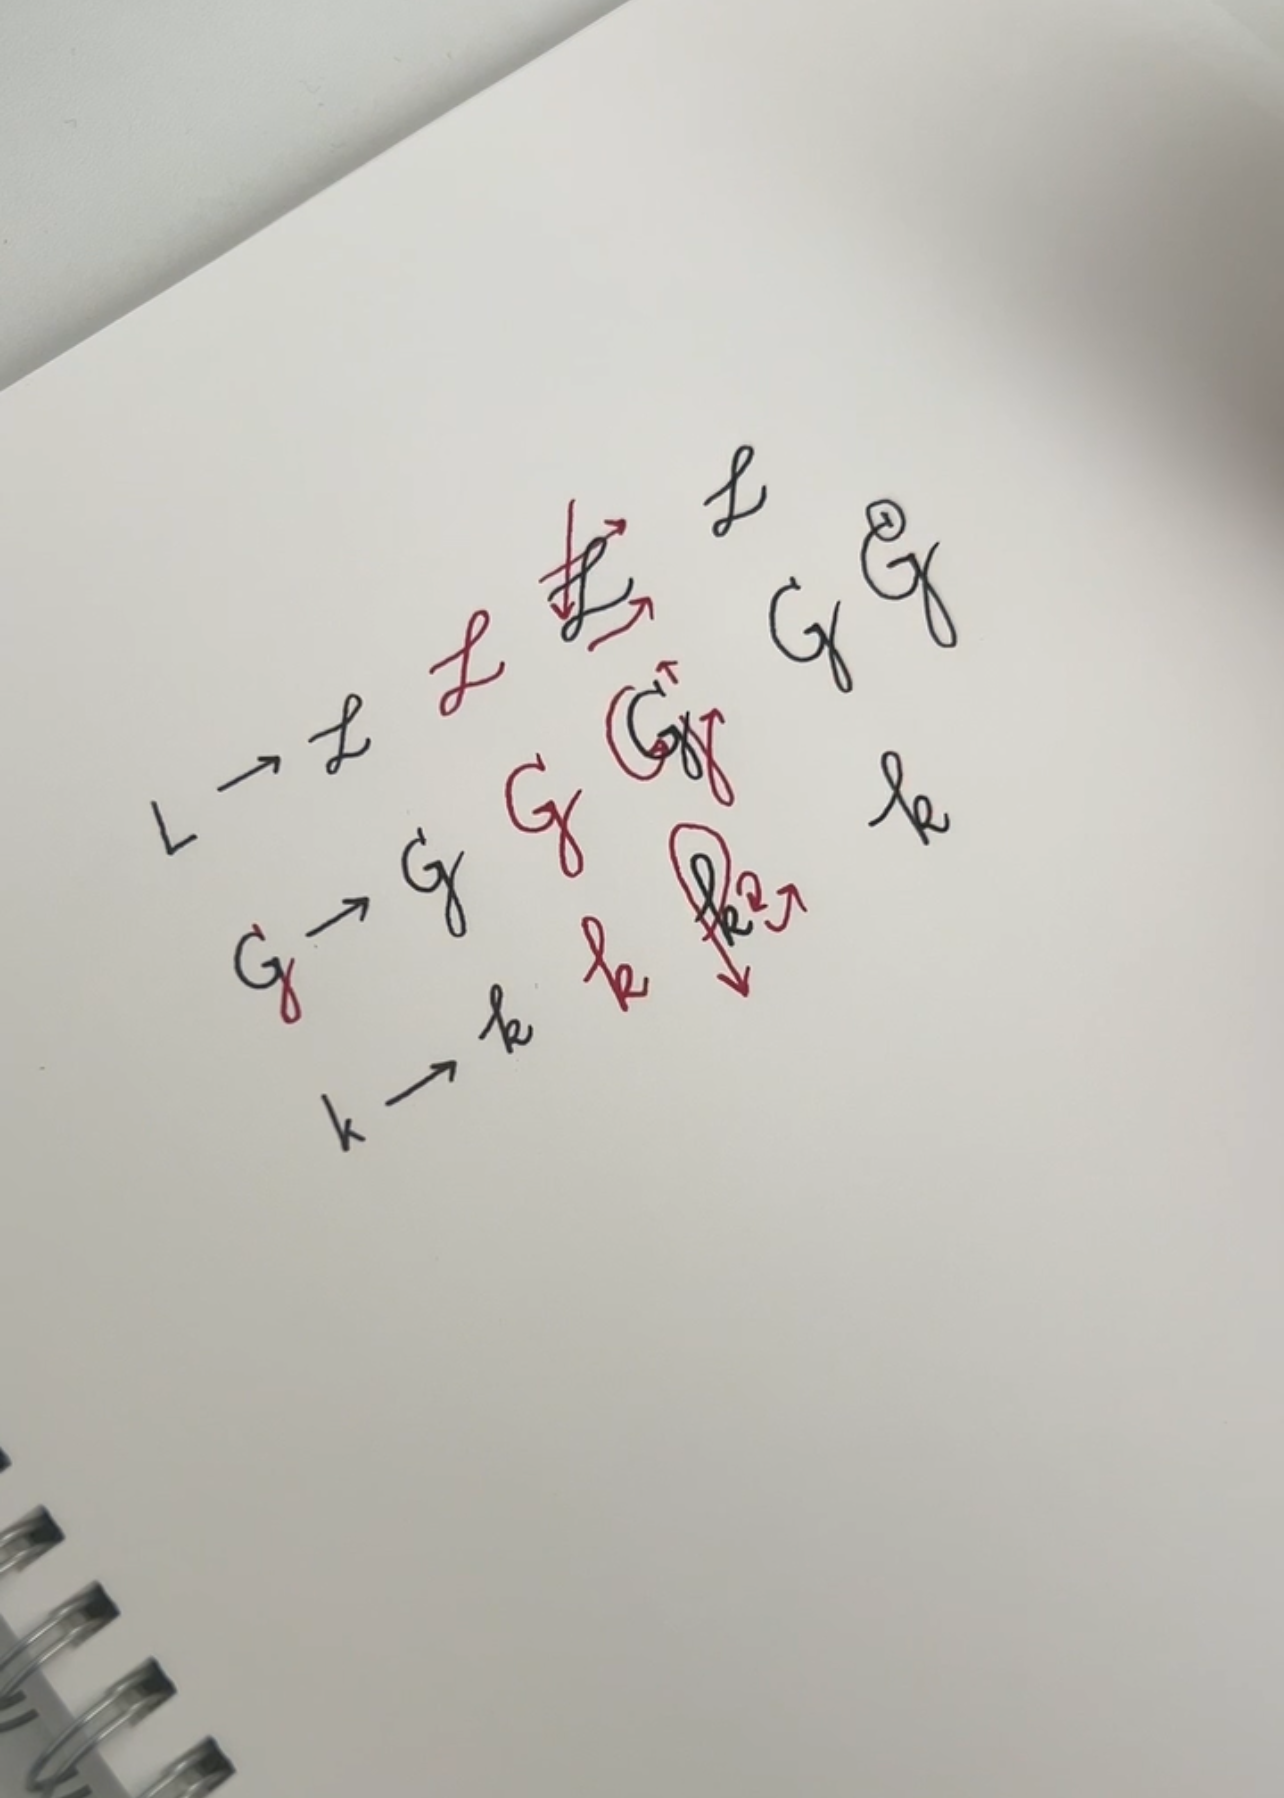 L → L L L L
G → G G G G G
k → k k k k